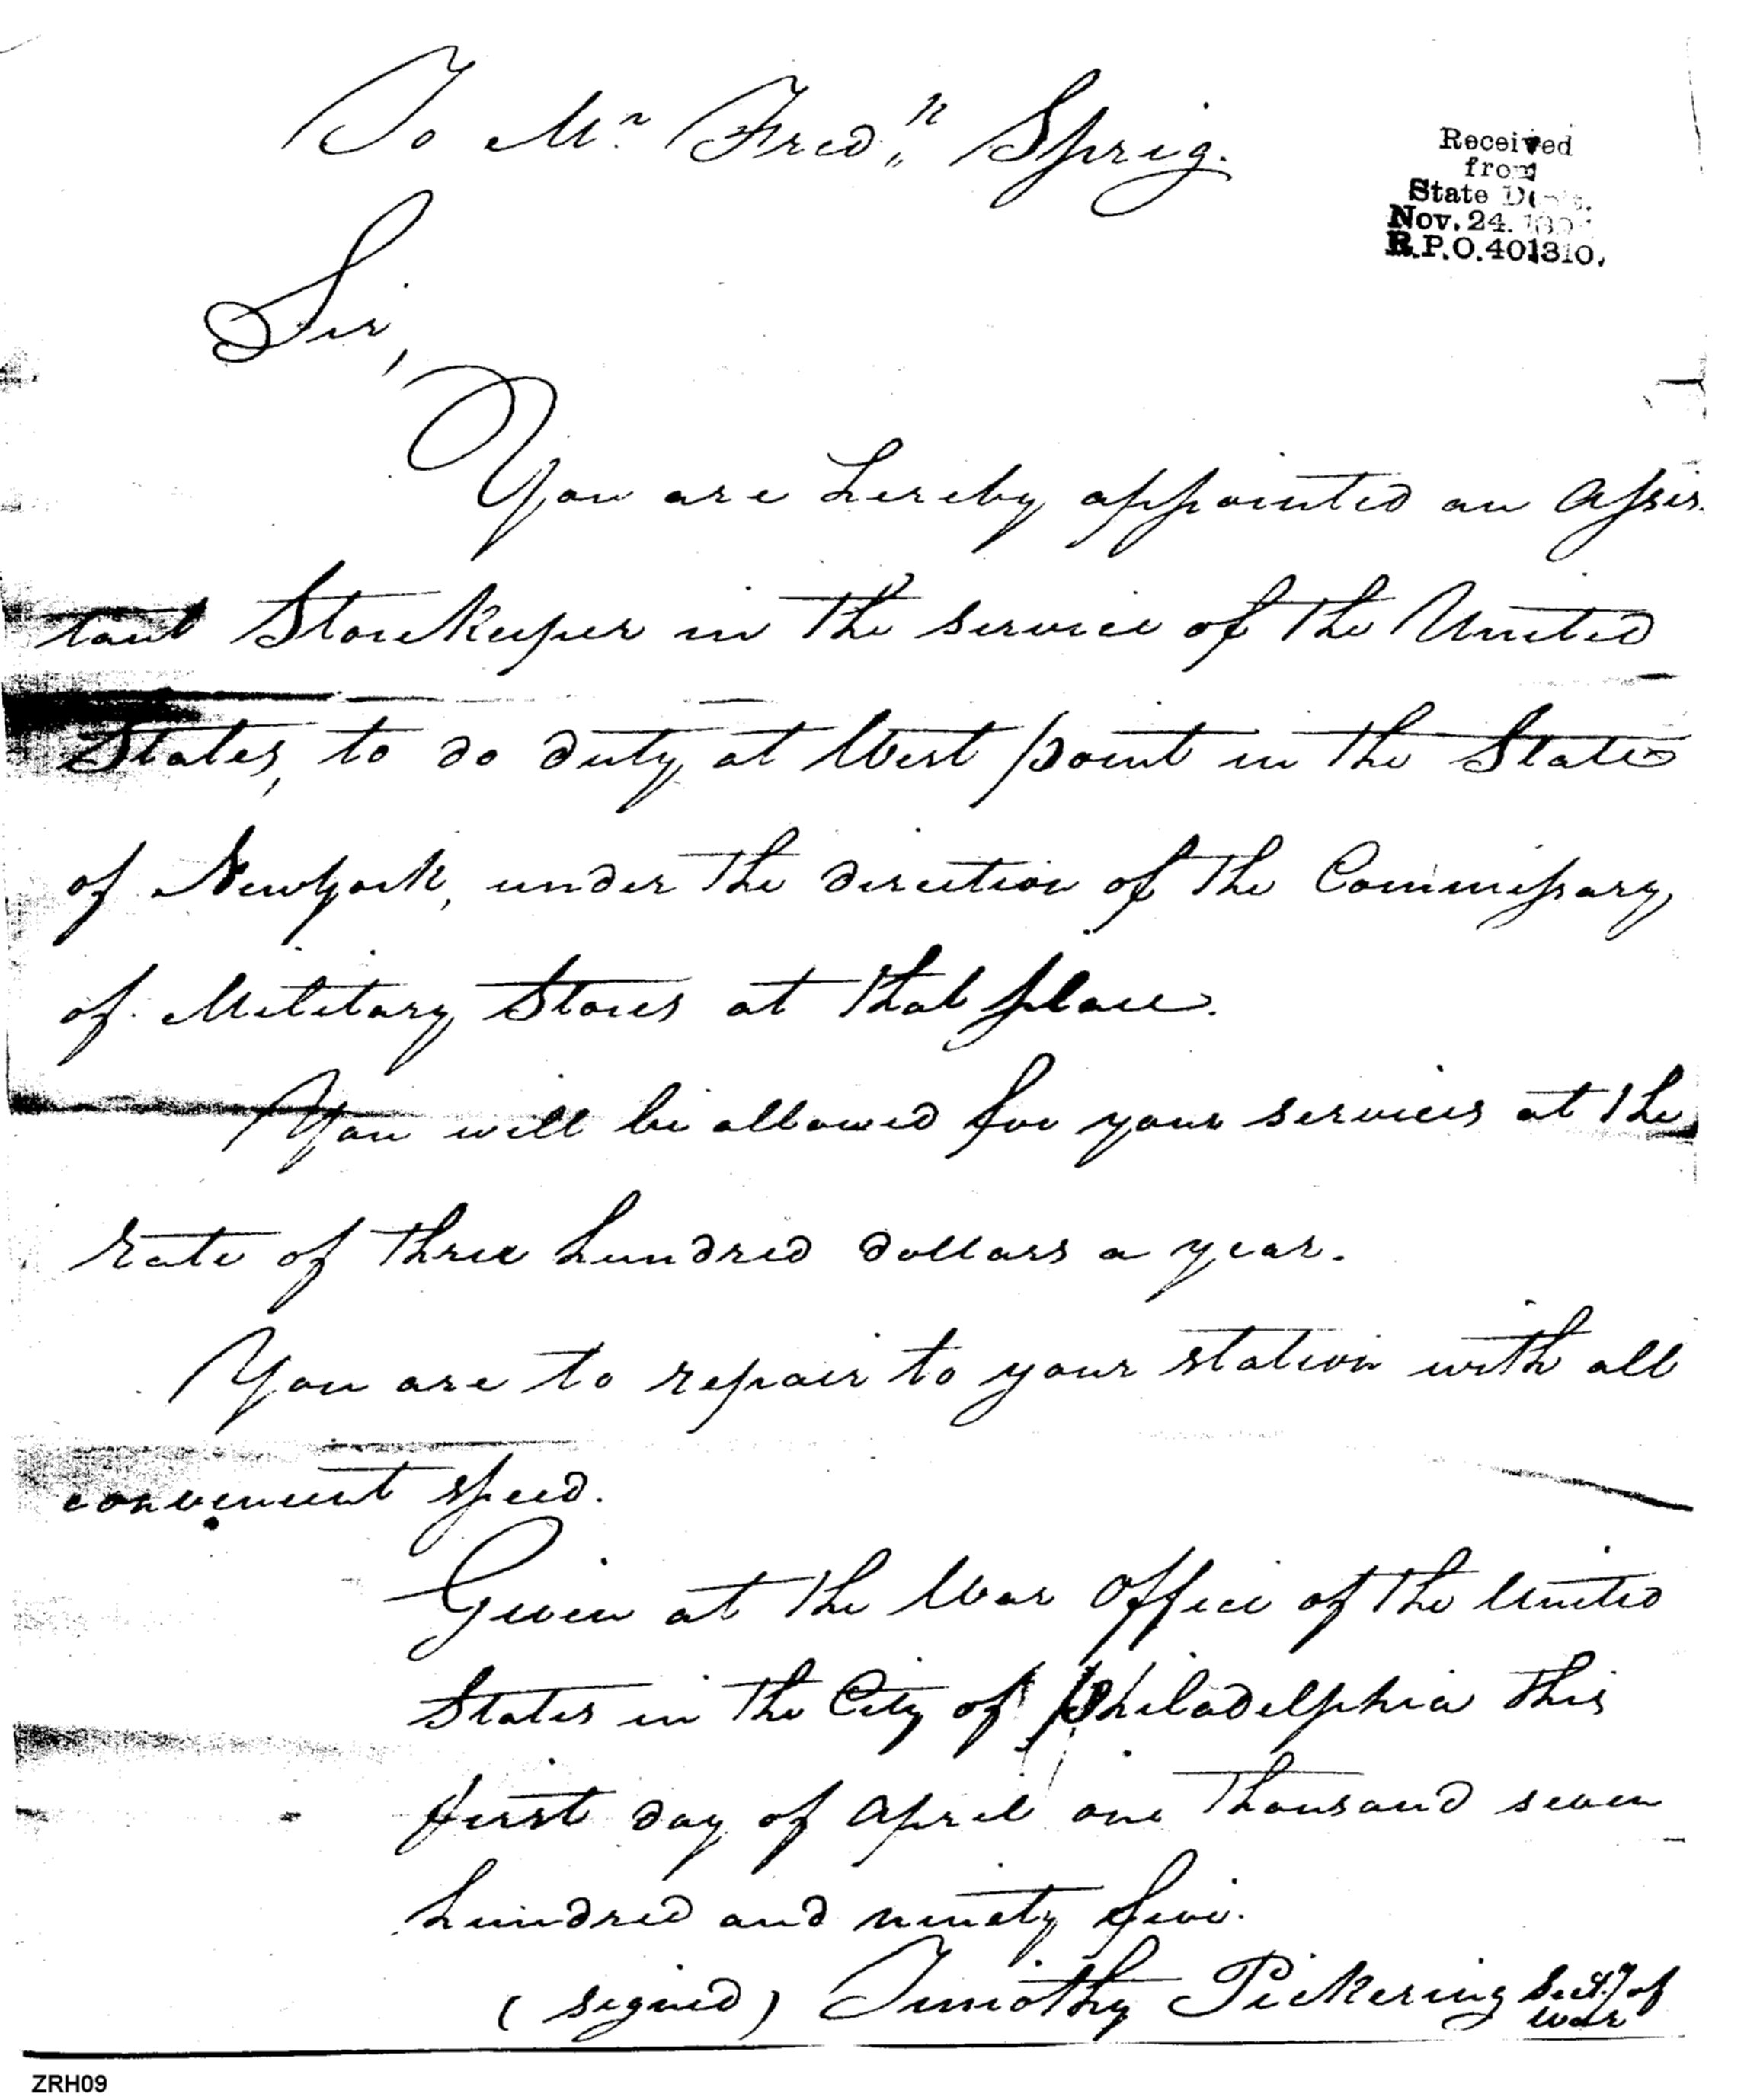 To Mr. Fredk Sprig.
Received
from
State Dept.
Nov. 24.
R.P.O. 401310.
Sir,
You are hereby appointed an Assis
tant Storekeeper in the service of the United
States, to do duty at West point in the State
of Newyork, under the direction of the Commissary
of Military Stores at that place.
You will be allowed for your services at the
rate of three hundred dollars a year.
You are to repair to your station with all
convenient speed.
Given at the War Office of the United
States in the City of Philadelphia this
first day of April one thousand seven
hundred and ninety five.
(signed) Timothy Pickering Secty of
War
ZRH09